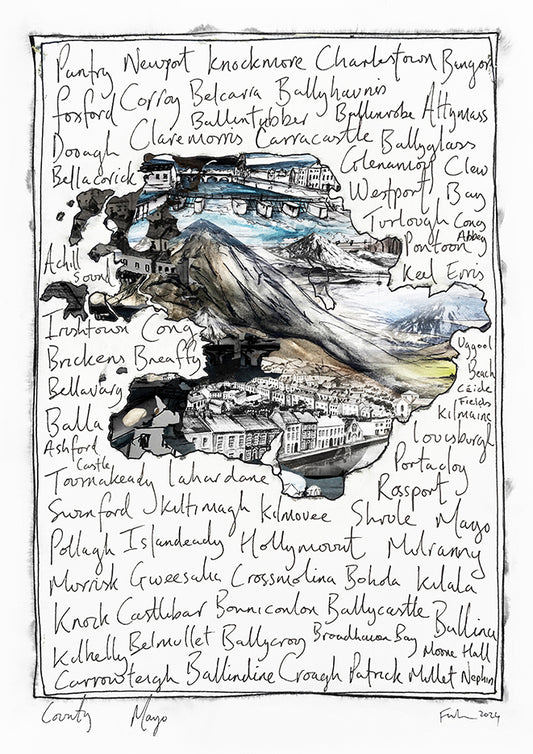 Pantry Newport Knockmore Charlestown Bangor
Foxford Corroy Belcarra Ballyhaunis
Ballintubber Ballinrobe Attymass
Dooagh Claremorris Carracastle Ballyglass
Bellacorick Glenamoy Clew
Westport Bay
Turlough Cong
Abbey
Pontoon
Achill Keel Erris
Sound
Irishtown Cong
Uggool
Brickens Breaffy Beach
Bellavary Céide
Fields
Balla Kilmaine
Ashford Louisburgh
Castle Portacloy
Toormakeady Lahardane Rossport
Swinford Kiltimagh Kilmovee Shrule Mayo
Pollagh Islandeady Hollymount Mulranny
Morrisk Gweesalia Crossmolina Bohola Kilala
Knock Castlebar Bonniconlon Ballycastle Ballina
Kilkelly Belmullet Ballycroy Broadhaven Bay Moore Hall
Carrowteigh Ballindine Croagh Patrick Mullet Nephin
County Mayo
2024